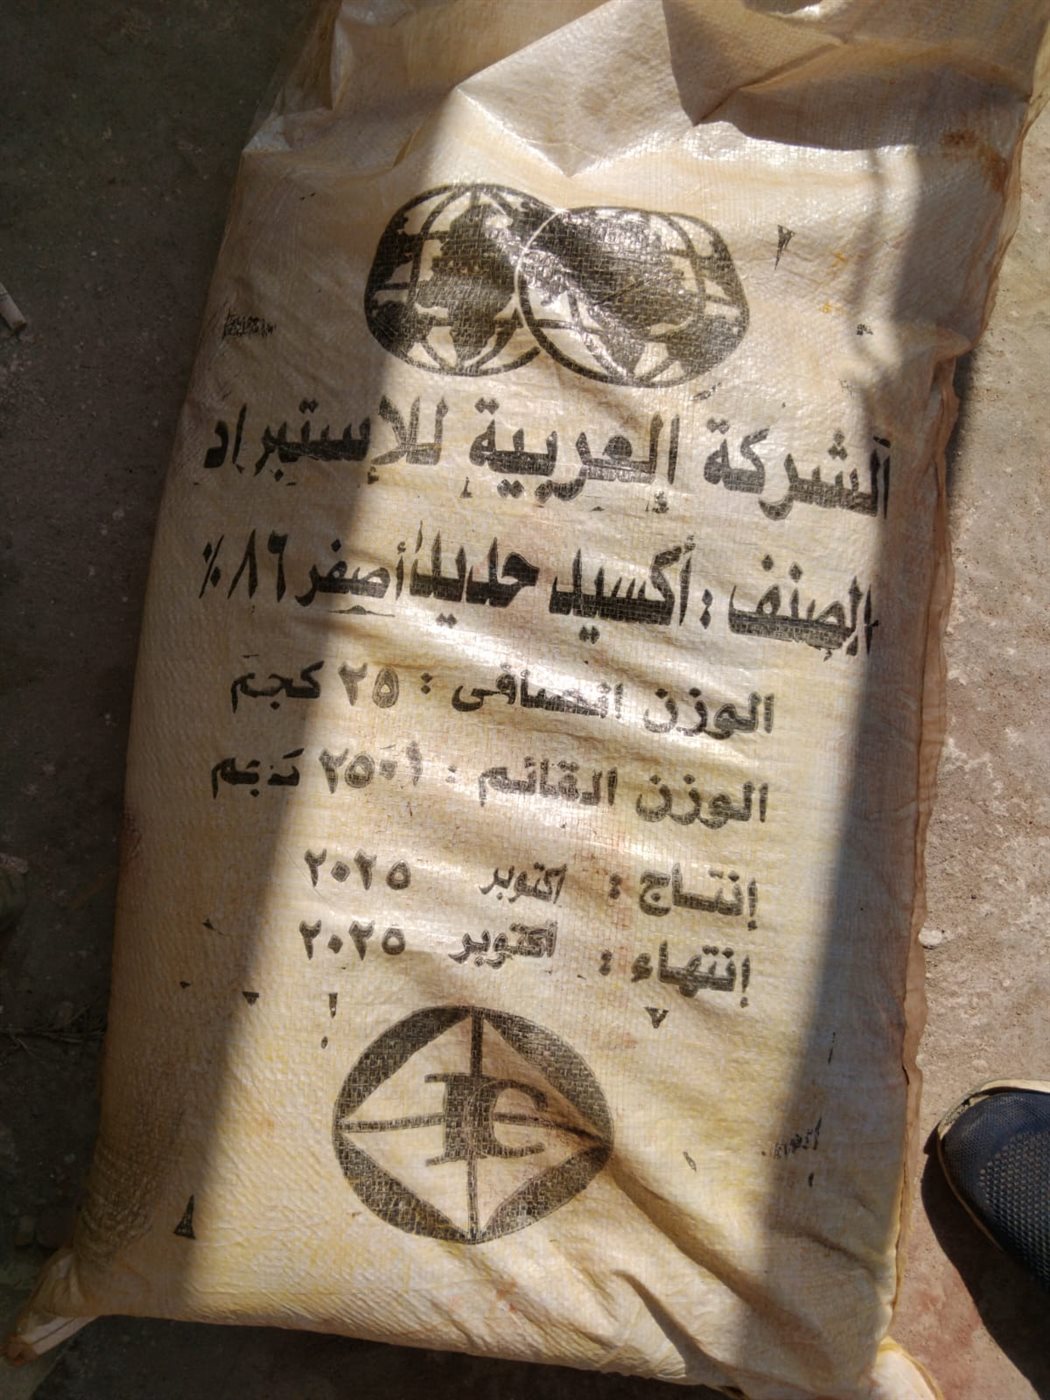 الشركة العربية للإستيراد
الصنف : أكسيد حديد أصفر ٨٦٪
الوزن الصافى : ٢٥ كجم
الوزن القائم : ٢٥٠١ كجم
إنتاج : اكتوبر ٢٠٢٥
إنتهاء : اكتوبر ٢٠٣٥
IC